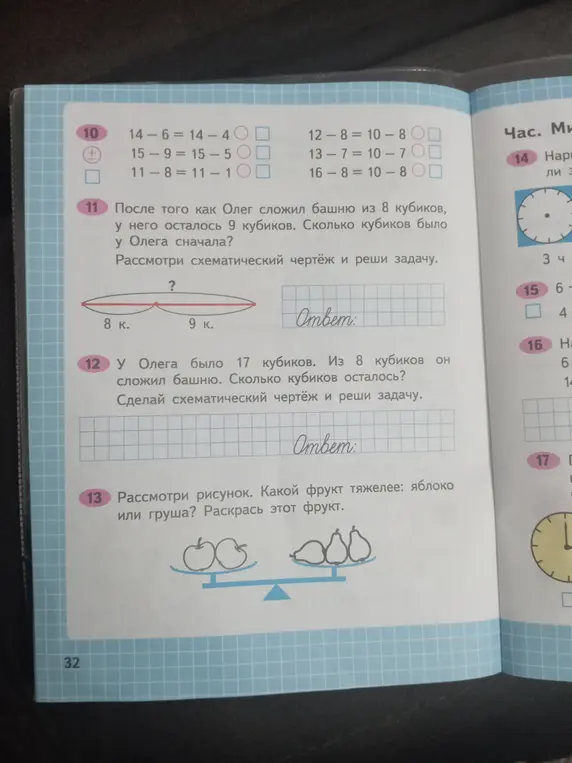 10 14 − 6 = 14 − 4 12 − 8 = 10 − 8
± 15 − 9 = 15 − 5 13 − 7 = 10 − 7
11 − 8 = 11 − 1 16 − 8 = 10 − 8
11 После того как Олег сложил башню из 8 кубиков,
у него осталось 9 кубиков. Сколько кубиков было
у Олега сначала?
Рассмотри схематический чертёж и реши задачу.
?
8 к. 9 к.
Ответ:
12 У Олега было 17 кубиков. Из 8 кубиков он
сложил башню. Сколько кубиков осталось?
Сделай схематический чертёж и реши задачу.
Ответ:
13 Рассмотри рисунок. Какой фрукт тяжелее: яблоко
или груша? Раскрась этот фрукт.
32
Час.
14
ли
3 ч
15 6
4
16
6
14
17